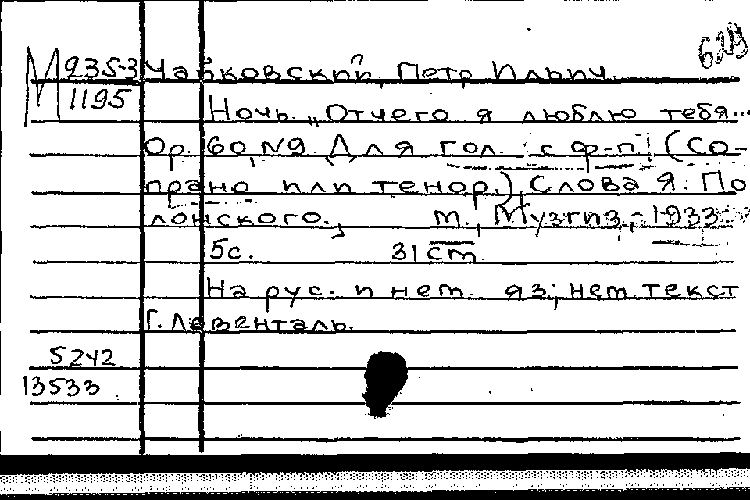 629
М 9353/1195 Чайковский, Петр Ильич
Ночь. „Отчего я люблю тебя...
Op. 60, N9. Для гол. с ф-п. (Со-
прано или тенор.) Слова Я. По
лонского., м., Музгиз, 1933
5с. 31 cm
На рус. и нем. яз; нем. текст
Г. Левенталь.
5242
13533